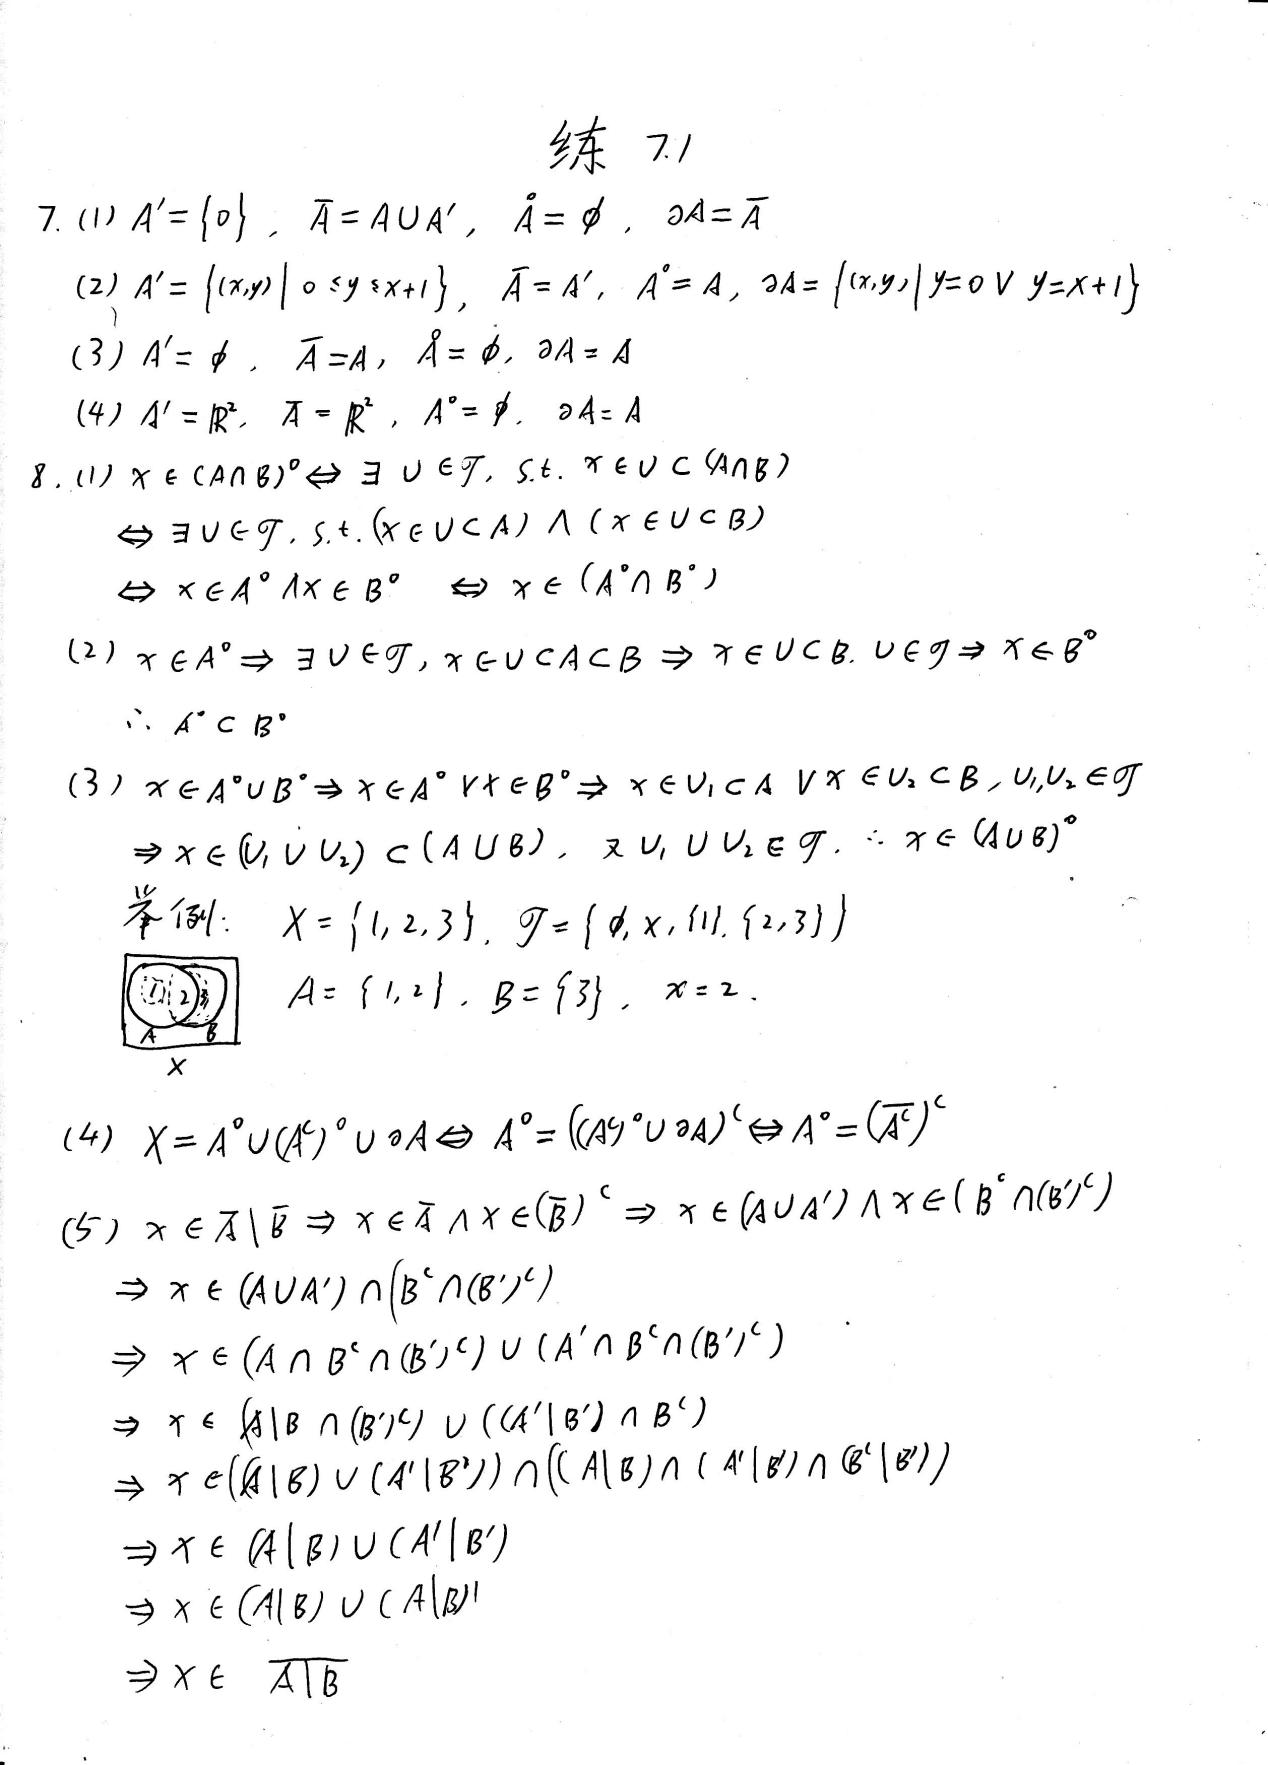 练 7.1
7. (1) A′={0}, Ā=A∪A′, Å=∅, ∂A=Ā
(2) A′={(x,y)|0≤y≤x+1}, Ā=A′, A°=A, ∂A={(x,y)|y=0∨y=x+1}
(3) A′=∅, Ā=A, Å=∅, ∂A=A
(4) A′=ℝ², Ā=ℝ², A°=∅, ∂A=A
8. (1) x∈(A∩B)°⇔∃U∈𝒯, s.t. x∈U⊂(A∩B)
⇔∃U∈𝒯, s.t. (x∈U⊂A)∧(x∈U⊂B)
⇔x∈A°∧x∈B° ⇔x∈(A°∩B°)
(2) x∈A°⇒∃U∈𝒯, x∈U⊂A⊂B⇒x∈U⊂B, U∈𝒯⇒x∈B°
∴A°⊂B°
(3) x∈A°∪B°⇒x∈A°∨x∈B°⇒x∈U₁⊂A∨x∈U₂⊂B, U₁,U₂∈𝒯
⇒x∈(U₁∪U₂)⊂(A∪B), 又U₁∪U₂∈𝒯. ∴x∈(A∪B)°
举例: X={1,2,3}, 𝒯={∅,X,{1},{2,3}}
A={1,2}, B={3}, x=2.
1 2 3
A B
X
(4) X=A°∪(Aᶜ)°∪∂A⇔A°=((Aᶜ)°∪∂A)ᶜ⇔A°=(A̅ᶜ̅)ᶜ
(5) x∈Ā\B̄⇒x∈Ā∧x∈(B̄)ᶜ⇒x∈(A∪A′)∧x∈(Bᶜ∩(B′)ᶜ)
⇒x∈(A∪A′)∩(Bᶜ∩(B′)ᶜ)
⇒x∈(A∩Bᶜ∩(B′)ᶜ)∪(A′∩Bᶜ∩(B′)ᶜ)
⇒x∈(A\B∩(B′)ᶜ)∪((A′\B′)∩Bᶜ)
⇒x∈((A\B)∪(A′\B′))∩((A\B)∩(A′\B′)∩(Bᶜ\B′))
⇒x∈(A\B)∪(A′\B′)
⇒x∈(A\B)∪(A\B)′
⇒x∈A̅\̅B̅